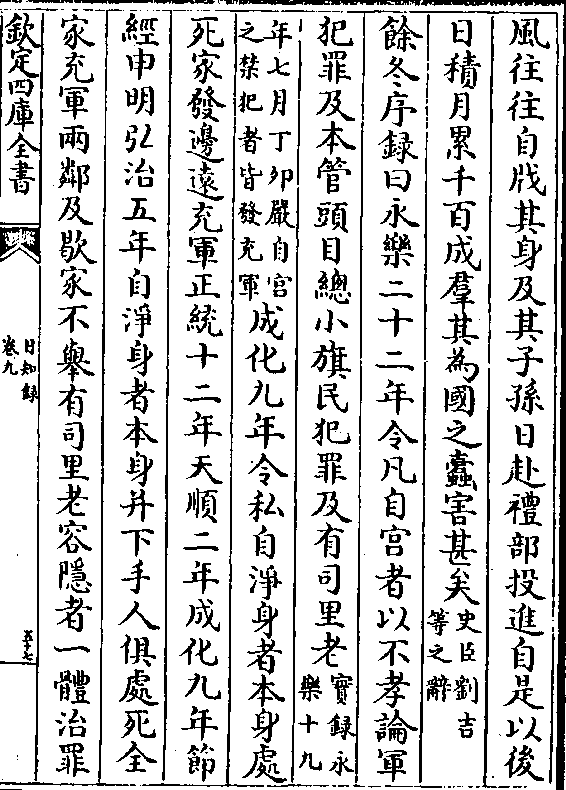 風往往自戕其身及其子孫日赴禮部投進自是以後
日積月累千百成羣其為國之蠹害甚矣史臣劉吉等之辭
餘冬序録曰永樂二十二年令凡自宫者以不孝論軍
犯罪及本管頭目總小旗民犯罪及有司里老實録永樂十九
年七月丁卯嚴自宫之禁犯者皆發充軍成化九年令私自淨身者本身處
死家發邊遠充軍正統十二年天順二年成化九年節
經申明弘治五年自淨身者本身并下手人俱處死全
家充軍兩鄰及歇家不舉有司里老容隱者一體治罪
欽定四庫全書
日知録
卷九
五十七